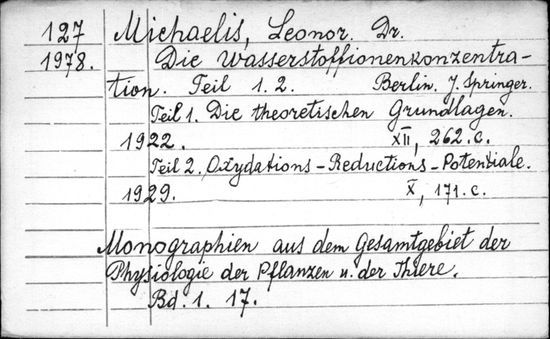 127 Michaelis, Leonor. Dr.
1978. Die Wasserstoffionenkonzentra-
tion. Teil 1. 2. Berlin. J. Springer.
Teil 1. Die theoretischen Grundlagen.
1922. XII, 262. c.
Teil 2. Oxydations-Reductions-Potentiale.
1929. X, 171. c.
Monographien aus dem Gesamtgebiet der
Physiologie der Pflanzen u. der Thiere.
Bd. 1. 17.